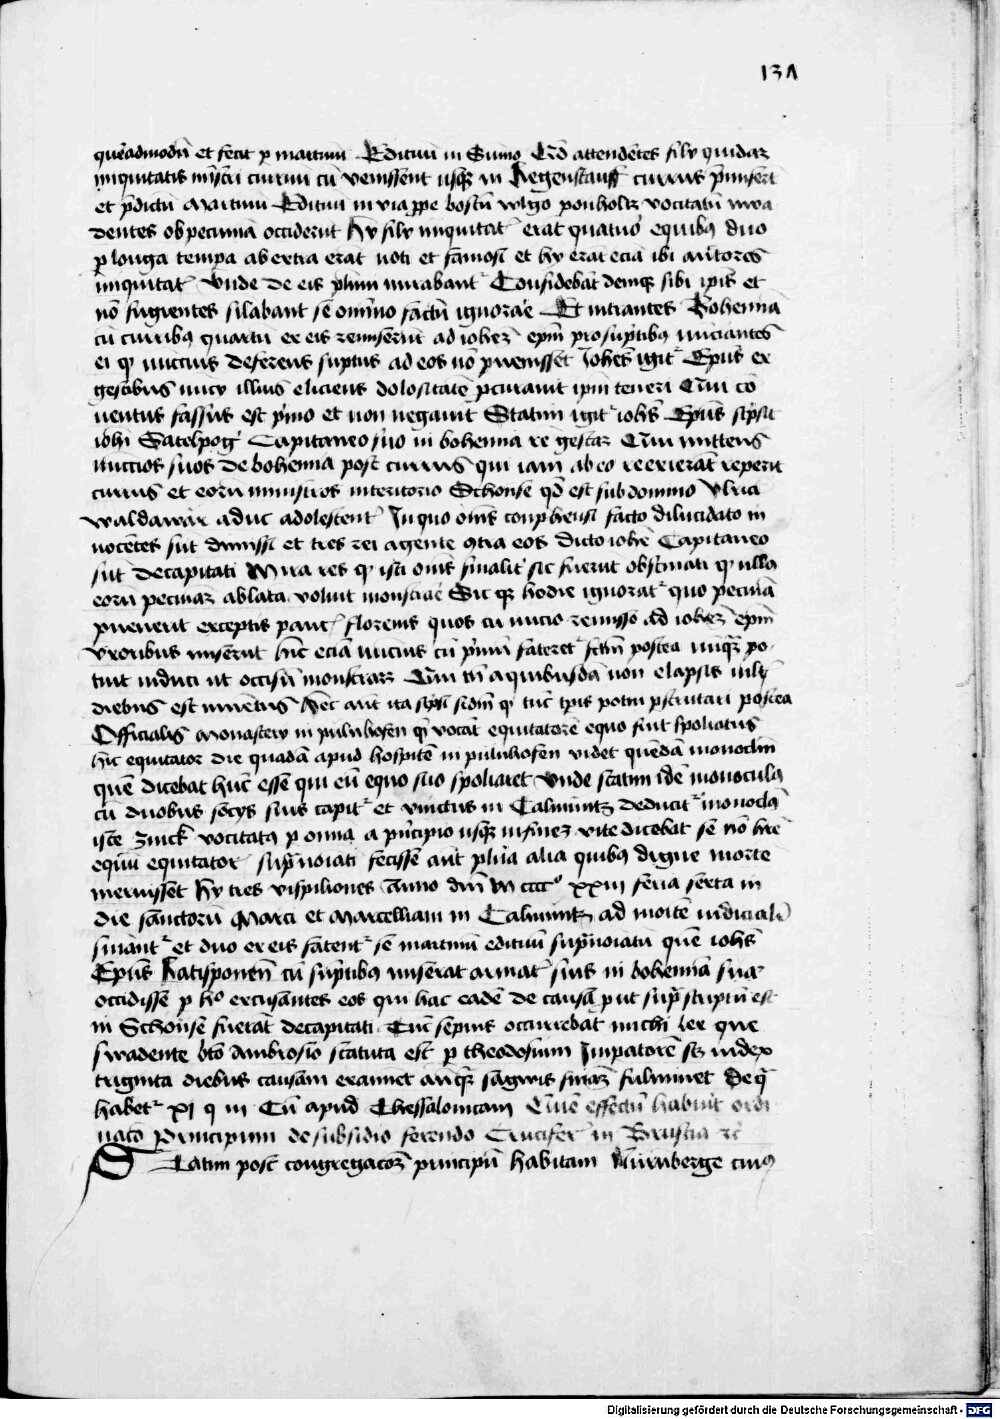 131
quēadmodū et fecit p martinū Editum in Sumo Qd attendētes filii quidaz
iniquitatis mīstri curruū cū venissent usqz in Regenstauff currus p̄miserūt
et p̄dictū Martinū Editum in via ppe boscū vulgo ponholtz vocitatū inva
dentes ob pecuniā occiderūt hy filii iniquitatis erāt quatuor e quibus duo
p longa tempa ab extra erāt noti et famosi et hy erāt ecia ibi auctores
iniquitatis Unde de eis plim mirabant Considebāt demqz sibi ipis et
nō fugientes silabant se omīno factū ignorare Et intrantes Bohemiā
cū curribus quartū ex eis remiserūt ad iohēz epm pro suptibus nuciantes
ei q nuncius deferens suptus ad eos nō pvenisset Johēs igit Epus ex
gestibus nucii illius eliciens dolositatē pcuravit ipm teneri Qui cō
ventus fassus est pmo et non negavit Statim igit iohs Epus scpsit
iohi Satelpog Capitaneo suo in bohemia re gestaz Qui mittens
nuccios suos de bohemia post currus qui iam ab eo reexierāt repperit
currus et eorū ministros in teritorio Schonse qd est sub domino Ulrico
waldawär aduc adolescent In quo om̄s conphensi facto dilucidato in
nocētes sūt dimissi et tres rei agente cōtra eos dicto iohē Capitaneo
sūt decapitati Mira res q isti om̄s finalit sic fuerūt obstinati q nllus
eorū pecuniaz ablatā voluit monstrare Sic qz hodie ignorat quo pecuniā
pvenerit exceptis pauc florenis quos cū nucio remisso ad iohēz epm
uxoribus miserūt hic eciā nuncius cū pmū fateret fctm postea nūqz po
tuit induci ut occisū monstraz Qui tn a quibusdā non elapsis mltis
diebus est inventus Hec aut ita scpsi scdm q tūc tpis potui pscrutari postea
Officialis Monasterii in pulnhofen q̄ vocāt equitatorē equo suit spoliatus
hic equitator die quadā apud hospitē in pulnhofen videt quēdā monoclm
quē dicebat hūc esse qui eū equo suo spoliaret unde statim idē monoculus
cū duobus socys suis capit et vinctus in Calmüntz deducit monoclus
iste Zinck vocitatus p omnia a pncipio usqz in finez vite dicebat se nō hrē
equū equitatoris supnoiati fecisse aut plura alia quibus digne morte
meruisset hy tres vispiliones Anno dm̄ M cccc° xxiii feria sexta in
die sanctorū Marci et Marcelliani in Calmüntz ad mortē iudicialit
finiant et duo ex eis fatent se martinū editum supnoiatū quē iohs
Epūs Ratisponen cū suptibus miserat armat suis in bohemia sua
occidisse p hoc excusantes eos qui hac eadē de causa put supscriptū est
in Schönse fuerāt decapitati Cūc sepius occurrebat michi lex que
swadente bto Ambrosio statuta est p theodosium Impatorē scz iudex
triginta diebus causam examiet anqz sangwis sniaz fulminet De q
habet XI q iii Cū apud Thessalonicam Quē effectū habuit ordi
nacō Principum de subsidio ferendo Crucifer in Bruscia rc
Statim post congregacōz principū habitam Nürnberge cuius